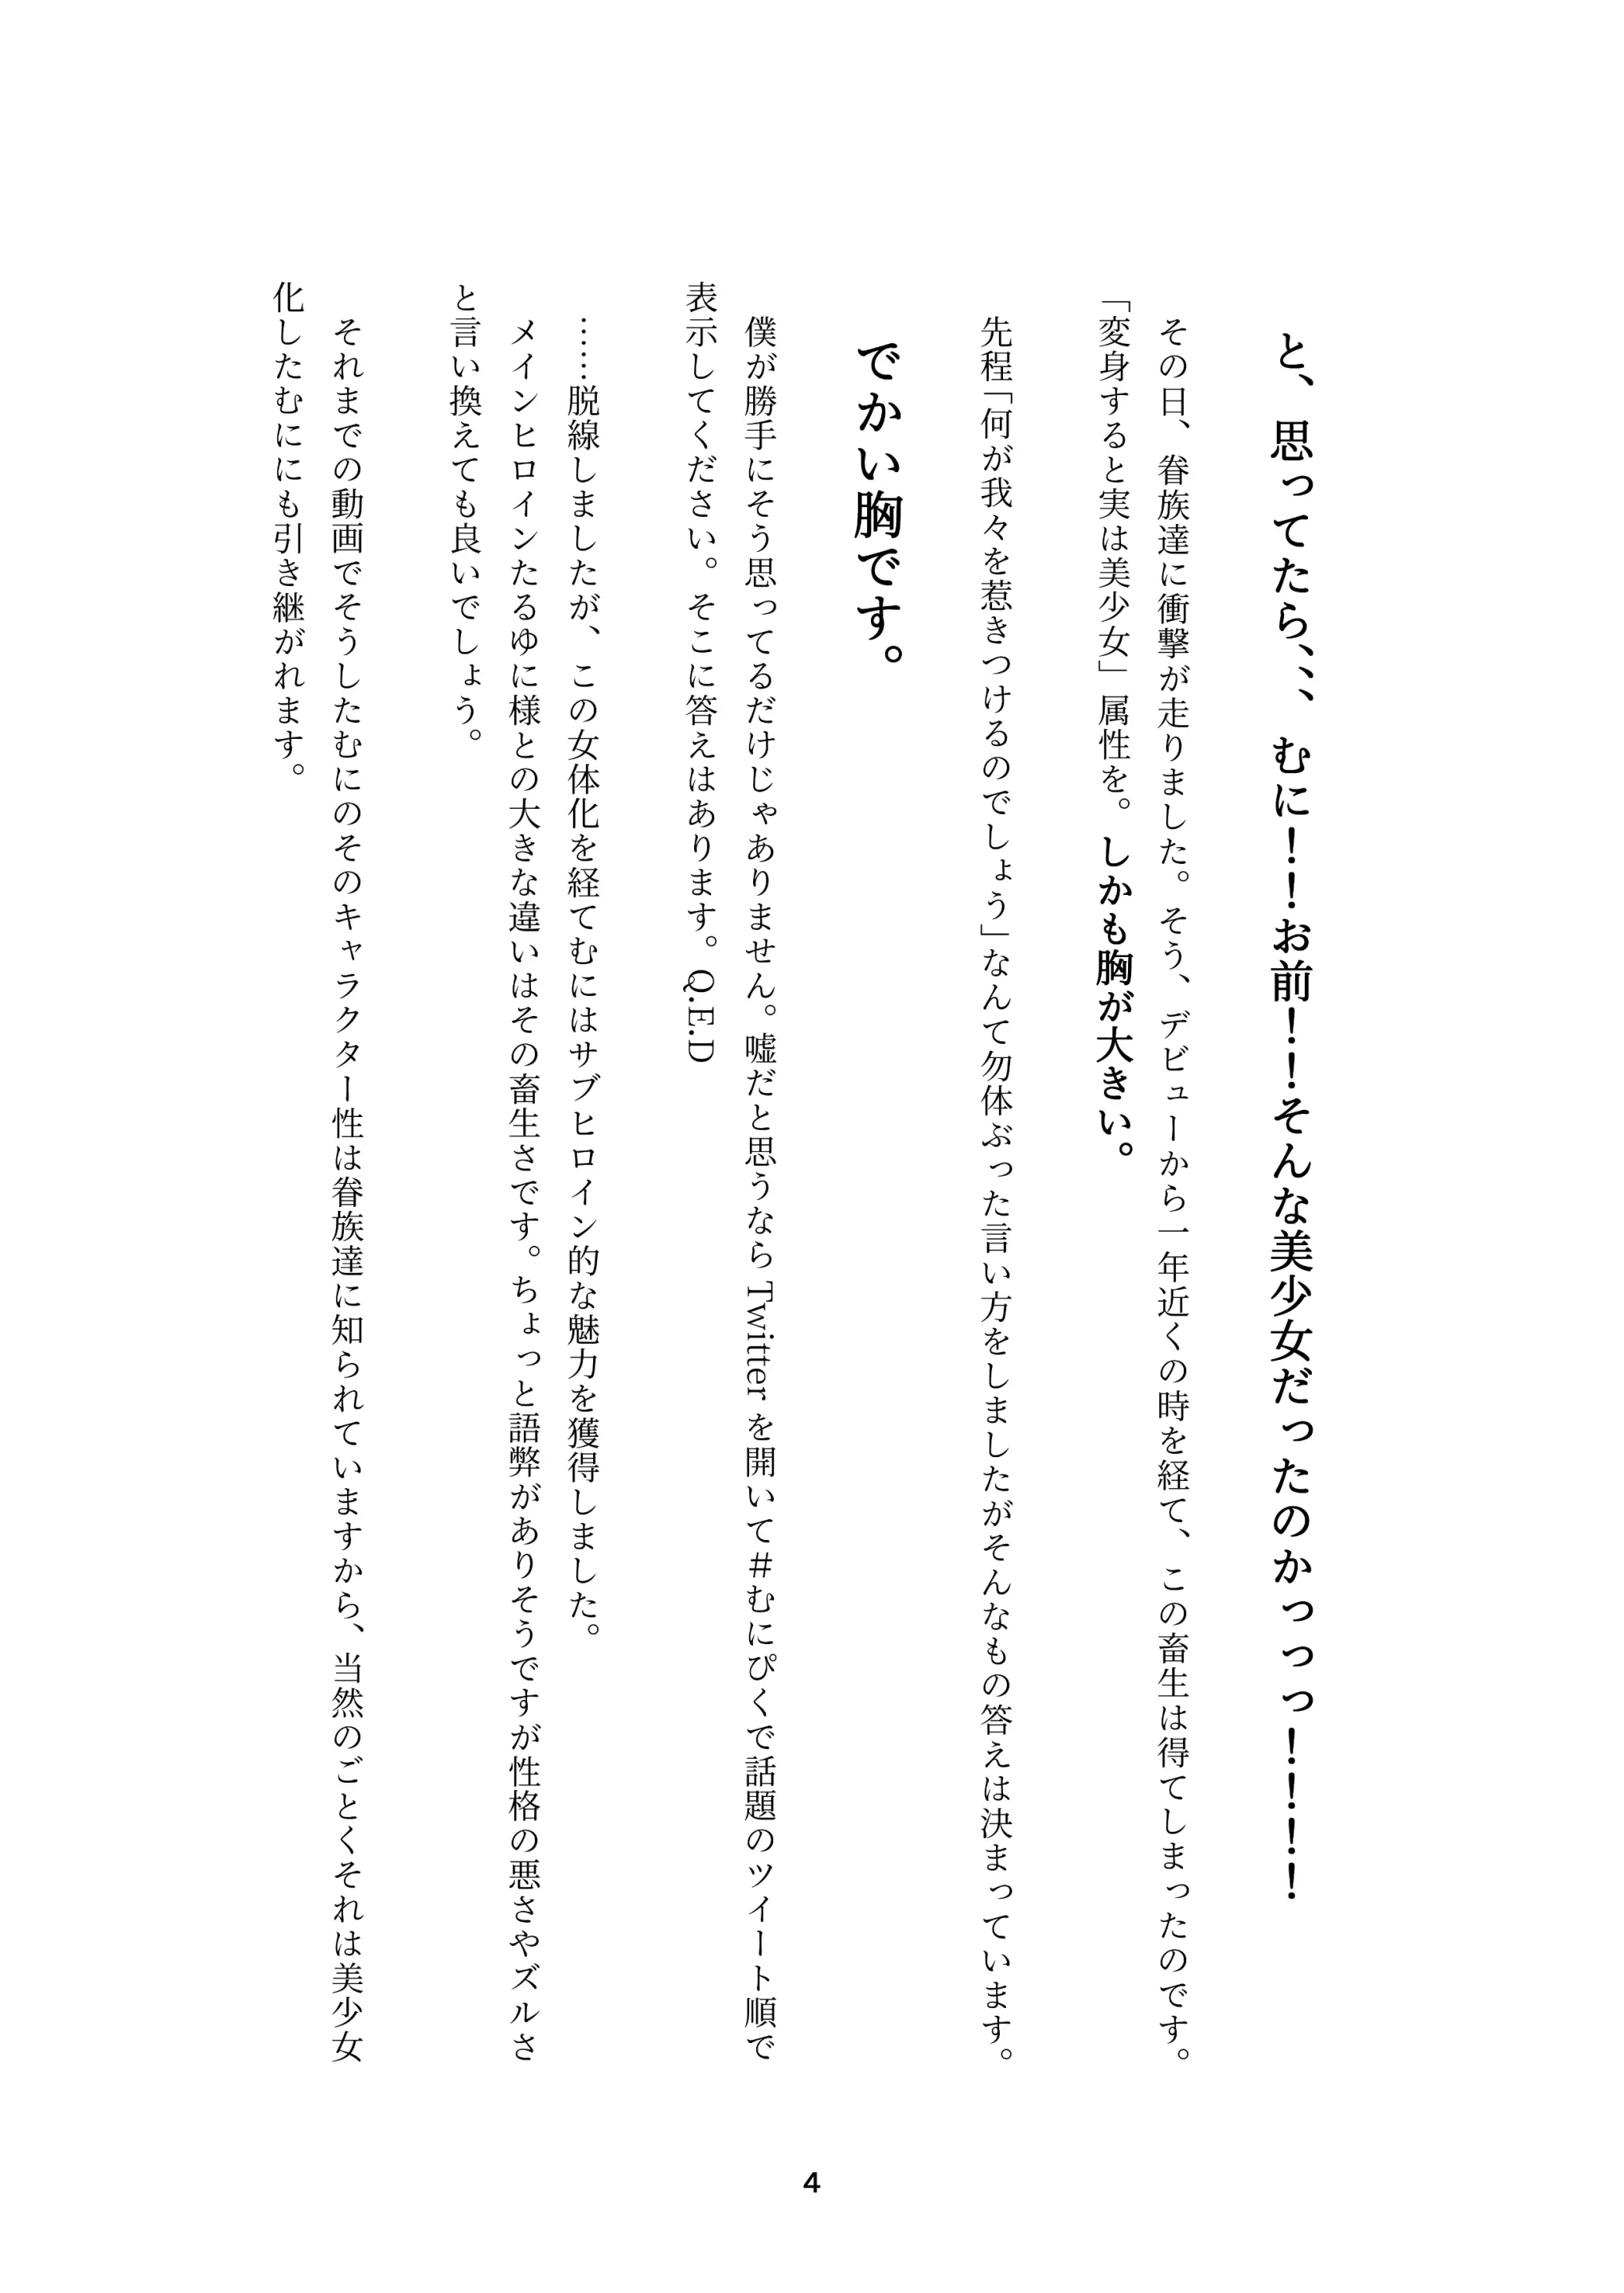 と、思ってたら、、、むに！！お前！！そんな美少女だったのかっっっ！！！！
その日、眷族達に衝撃が走りました。そう、デビューから一年近くの時を経て、この畜生は得てしまったのです。
「変身すると実は美少女」属性を。しかも胸が大きい。
先程「何が我々を惹きつけるのでしょう」なんて勿体ぶった言い方をしましたがそんなもの答えは決まっています。
でかい胸です。
僕が勝手にそう思ってるだけじゃありません。嘘だと思うなら Twitter を開いて＃むにぴくで話題のツイート順で
表示してください。そこに答えはあります。Q.E.D
……脱線しましたが、この女体化を経てむにはサブヒロイン的な魅力を獲得しました。
メインヒロインたるゆに様との大きな違いはその畜生さです。ちょっと語弊がありそうですが性格の悪さやズルさ
と言い換えても良いでしょう。
それまでの動画でそうしたむにのそのキャラクター性は眷族達に知られていますから、当然のごとくそれは美少女
化したむににも引き継がれます。
4